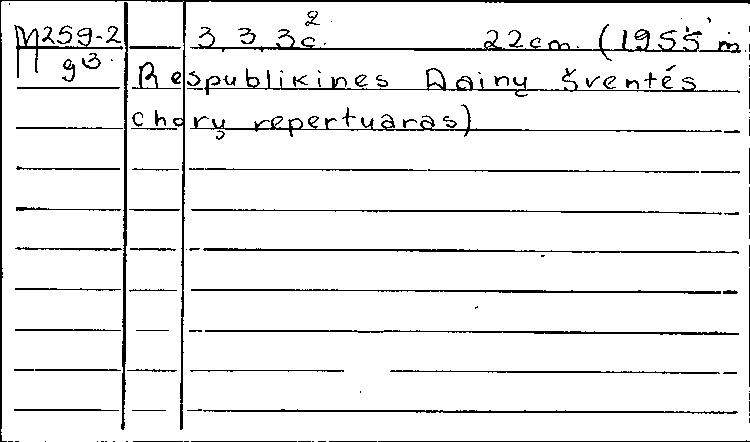 M259-2 3, 3, 3c.² 22cm. (1955 m
93. Respublikinės Dainų Šventės
chorų repertuaras)